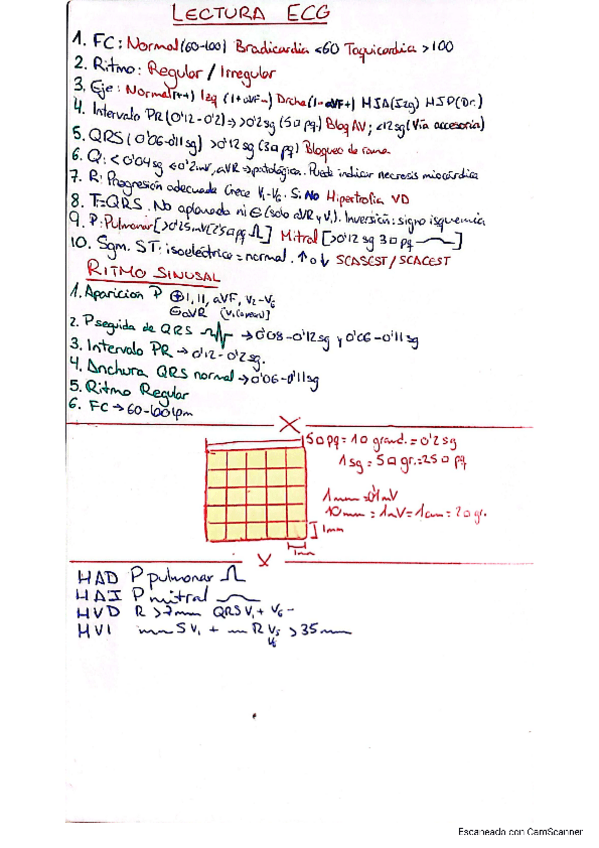 LECTURA ECG
1. FC: Normal (60-100) Bradicardia <60 Taquicardia >100
2. Ritmo: Regular / Irregular
3. Eje: Normal (++) Izq (I+ aVF-) Drcha (I- aVF+) HIA (Izq) HIP (Dr.)
4. Intervalo PR (0'12-0'2) => >0'2sg (5□pq.) Bloq AV; <12sg (Vía accesoria)
5. QRS (0'06-0'11sg) >0'12sg (3□pq) Bloqueo de rama
6. Q: <0'04sg <0'2mV, aVR → patológica. Puede indicar necrosis miocárdica
7. R: Progresión adecuada Crece V1-V6. Si No Hipertrofia VD
8. T=QRS. No aplanada ni ⊖ (solo aVR y V1). Inversión: signo isquemia
9. P: Pulmonar [>0'25mV (2'5□pq] Mitral [>0'12sg 3□pq]
10. Sgm. ST: isoeléctrico = normal. ↑ o ↓ SCASEST/SCACEST
RITMO SINUSAL
1. Aparicion P ⊕ I, II, aVF, V2-V6
⊖ aVR
2. P seguida de QRS → 0'08-0'12sg y 0'06-0'11sg
3. Intervalo PR → 0'12-0'2sg.
4. Anchura QRS normal → 0'06-0'11sg
5. Ritmo Regular
6. FC → 60-100 lpm
5□pq = 1□grand. = 0'2sg
1sg = 5□gr. = 25□pq
1mm = 0'1mV
10mm = 1mV = 1cm = 2□gr.
1mm
1mm
HAD P pulmonar
HAI P mitral
HVD R >7mm QRS V1+ V6-
HVI mm S V1 + mm R V5 >35mm
V6
Escaneado con CamScanner